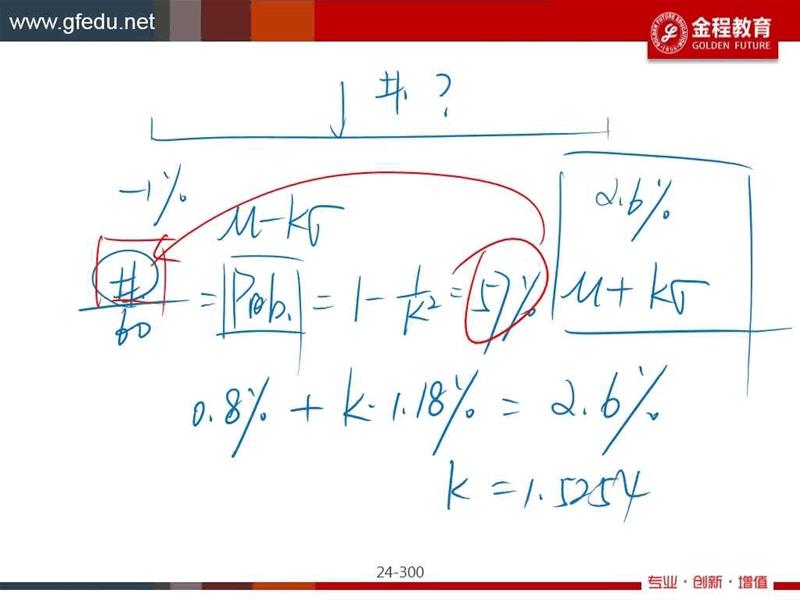 www.gfedu.net
金程教育
GOLDEN FUTURE
#. ?
-1%
2.6%
μ-kσ
#/60 = Prob. = 1 - 1/k² = 57%
μ + kσ
0.8% + k·1.18% = 2.6%
k = 1.5254
24-300
专业·创新·增值